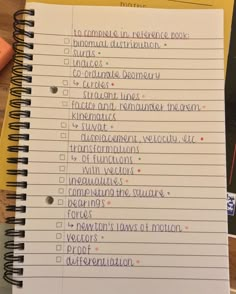 to complete in reference book:
□ binomial distribution •
□ surds •
□ indices •
co-ordinate geometry
□ ↳ circles •
□ straight lines •
□ factor and remainder theorem •
kinematics
□ ↳ suvat •
□ displacement, velocity, etc •
transformations
□ ↳ of functions •
□ with vectors •
□ inequalities •
□ completing the square •
□ bearings •
forces
□ ↳ newton's laws of motion •
□ vectors •
□ proof •
□ differentiation •